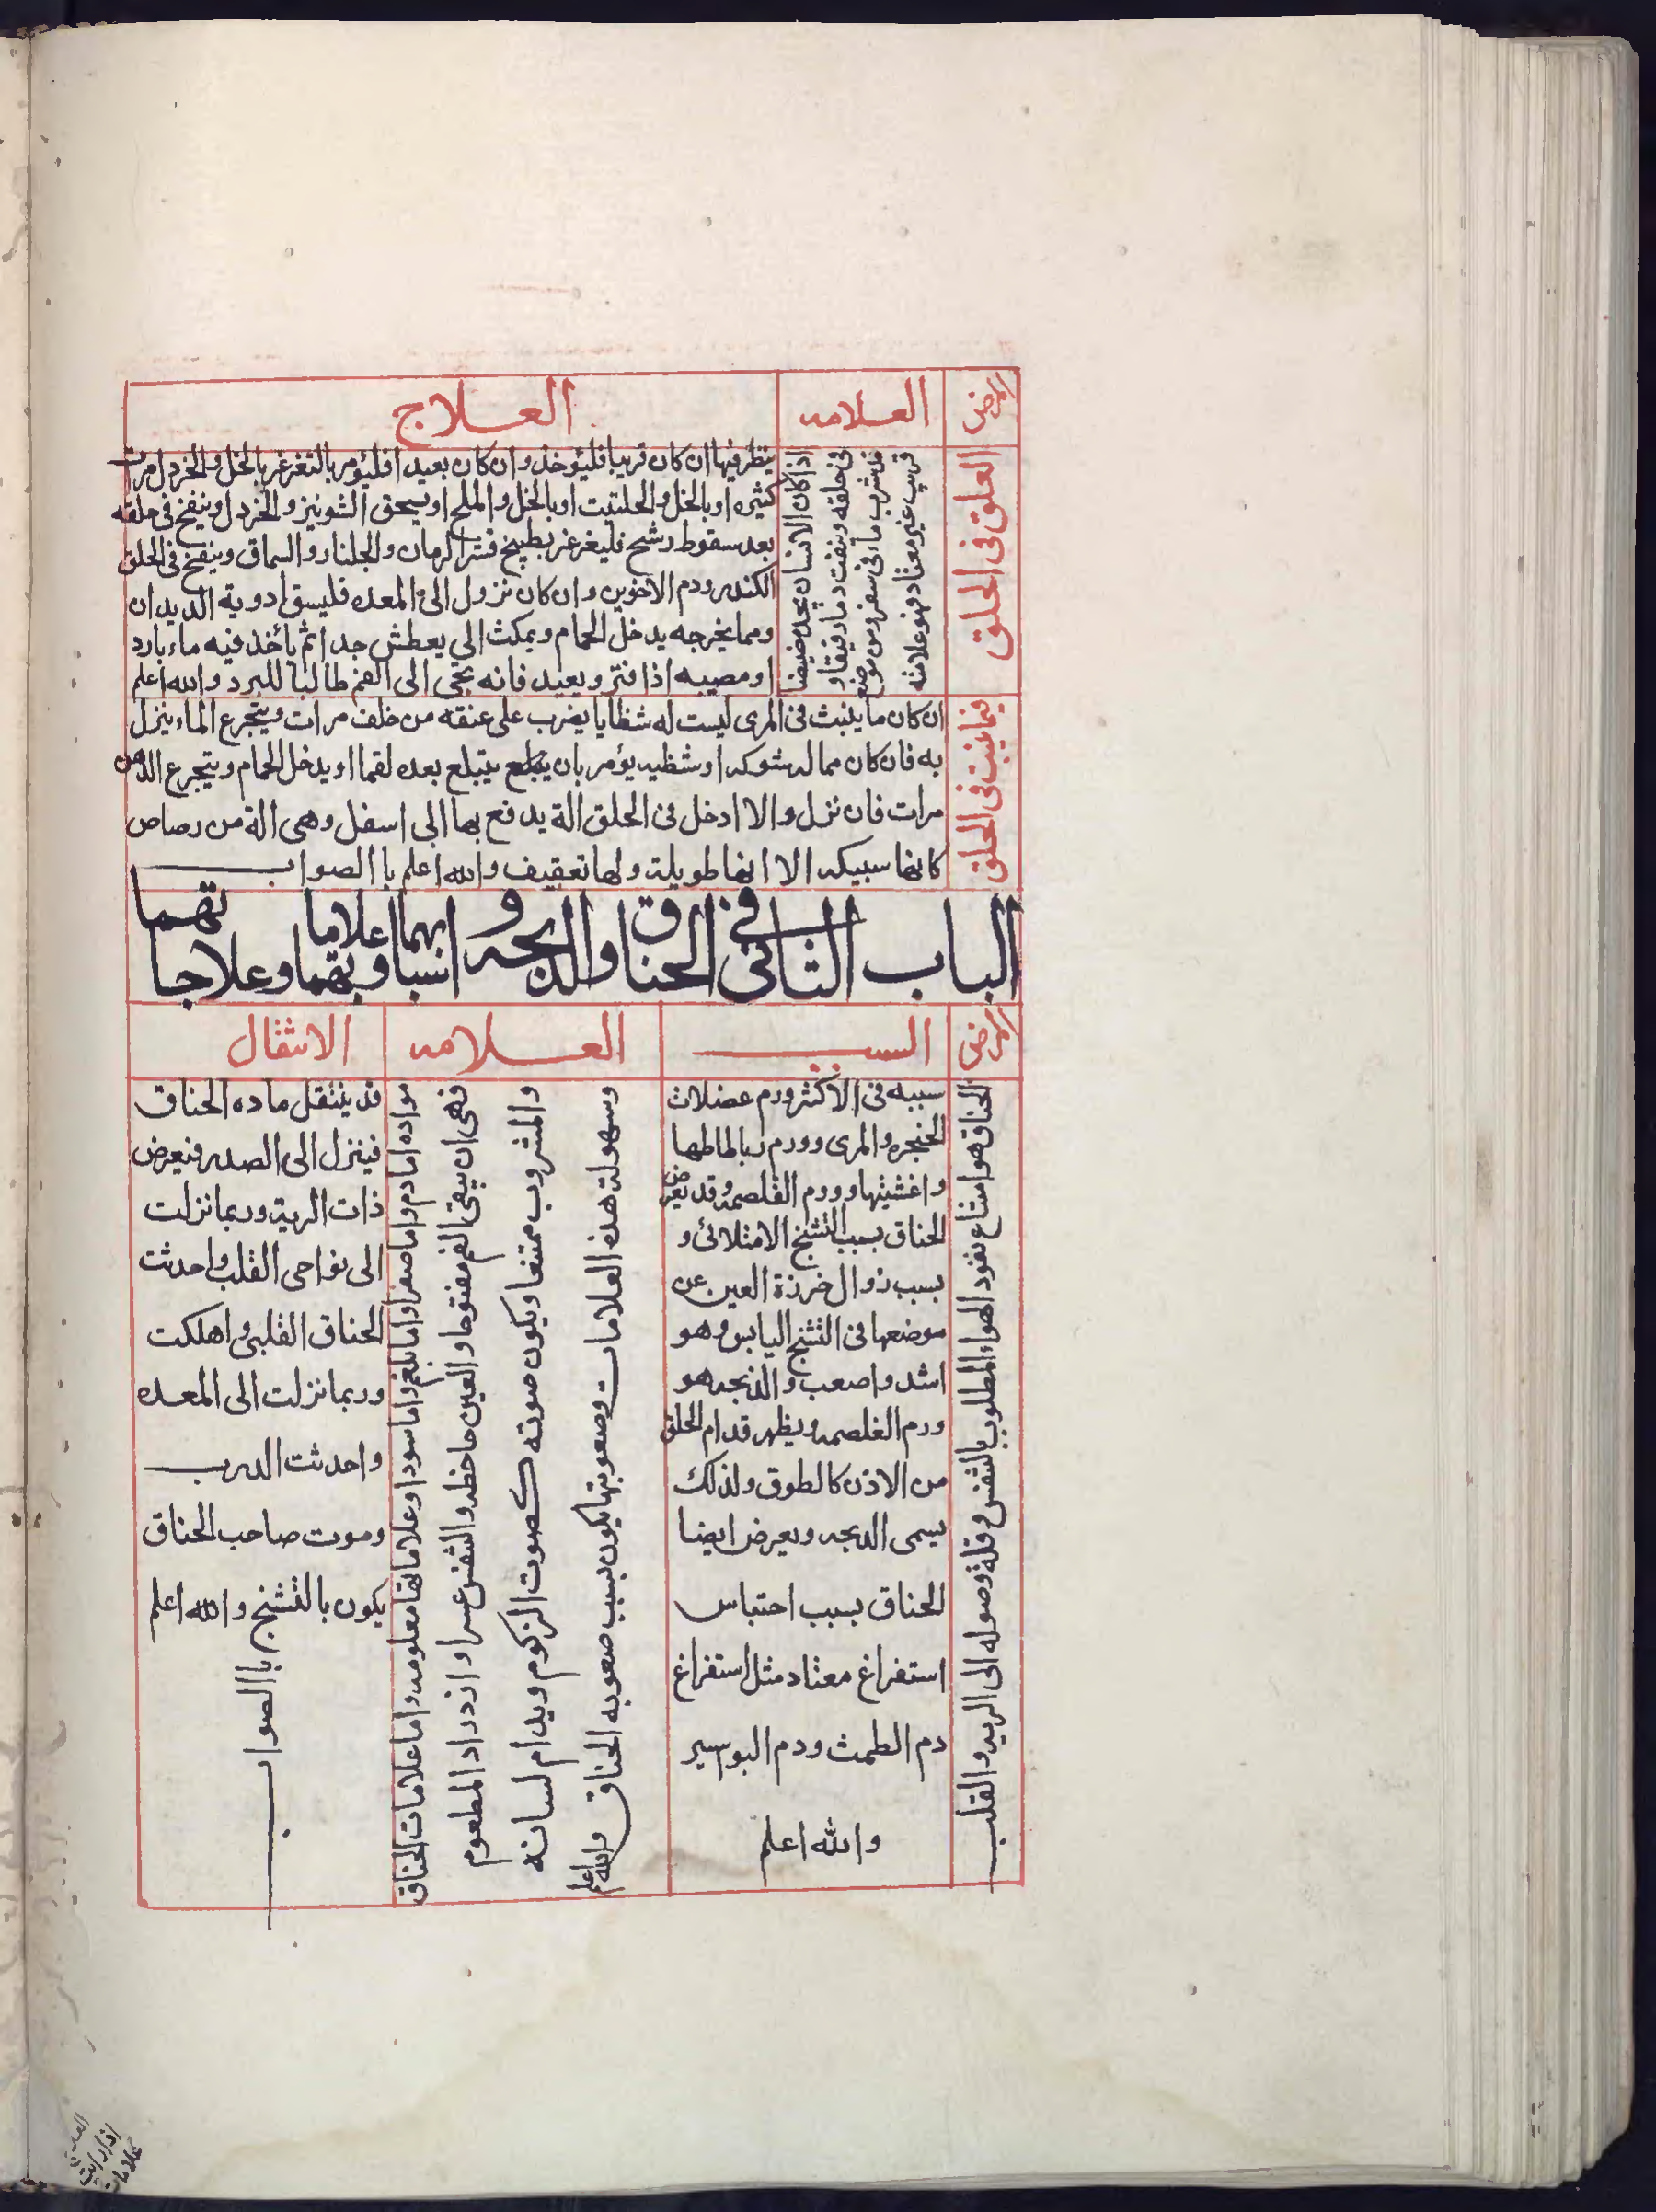 المرض
العلامه
العلاج
العلق فى الحلق
اذا كان الانسان يجد مضيضا
فى حلقه وينفث دما رقيقا و
قد شرب ماء فى سفر ومن موضع
قريب غير معتاد فهو علامته
ينظر فيها ان كان قريبا فليؤخذ وان كان بعيدا فليؤمر بالتغرغر بالخل والخردل مرات
كثيره او بالخل والحلتيت او بالخل والملح او يسحق الشونيز والخردل وينفخ فى حلقه
بعد سقوط رشح فليغرغر بطبيخ قشر الرمان والجلنار والسماق وينفخ فى الحلق
الكندر ودم الاخوين وان كان نزول الى المعده فليسق ادوية الديدان
ومما يخرجه يدخل الحمام ويمكث الى يعطش جدا ثم ياخذ فيه ماء بارد
او مصيبه اذا فتر ويعيد فانه يجى الى الفم طالبا للبرد والله اعلم
فيما ينبت فى الحلق
ان كان ما ينبث فى المرى ليست له شظايا يضرب على عنقه من خلف مرات ويتجرع الماء ينزل
به فان كان مما له شوكه او شظيه يؤمر بان يبتلع يبتلع بعده لقما او يدخل الحمام ويتجرع الدهن
مرات فان نزل والا ادخل فى الحلق الة يدفع بها الى اسفل وهى الة من رصاص
كانها سبيكه الا انها طويلة ولها تعقيف والله اعلم با الصواب
الباب الثانى فى الخناق والذبحه و اسبابهما وعلاماتهما وعلاجا تهما
المرض
السبب
العلامه
الانتقال
الخناق هو امتناع نفود الهواء المطلوب بالتنفس وقلة وصوله الى الريه والقلب
سببه فى الاكثر ورم عضلات
الحنجره والمرى وورم رباطاطها
واغشيتها وورم الغلصمه وقد يعرض
الخناق بسبب التشنج الامتلائى و
بسبب زوال خرزة العين عن
موضعها فى التشنج اليابس وهو
اشد واصعب والذبحه هو
ورم الغلصمه ويظهر قدام الحلق
من الاذن كالطوق ولذلك
يسمى الذبحه ويعرض ايضا
الخناق بسبب احتباس
استفراغ معتاد مثل استفراغ
دم الطمث ودم البوسير
والله اعلم
مواده اما دم واما صفرا واما بلغم واما سودا وعلاماتها معلومه واما علامات الخناق
فهى ان يبقى الفم مفتوحا والعين جاحظه والتنفس عسرا وازدراد المطعوم
والمشروب ممتنعا ويكون صوته كصوت الزكوم ويدام لسانه
وسهولة هذه العلامات وصعوبتها يكون بسبب صعوبه الخناق والله اعلم
قد ينتقل ماده الخناق
فينزل الى الصدر فيعرض
ذات الرية وربما نزلت
الى نواحى القلب واحدثت
الخناق القلبى واهلكت
وربما نزلت الى المعده
واحدثت الدرب
وموت صاحب الخناق
يكون بالتشنج والله اعلم
با الصواب
اذا رايت
علامات